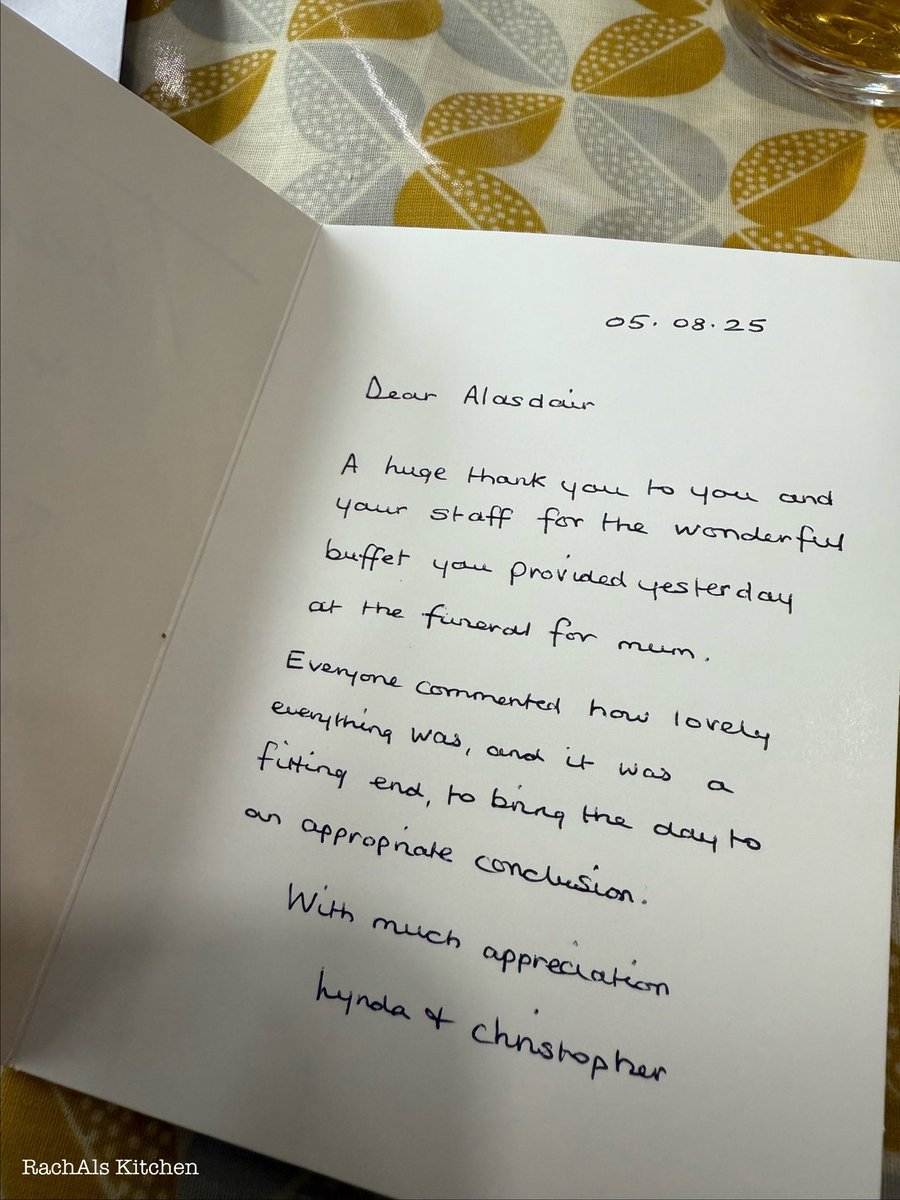 05.08.25
Dear Alasdair
A huge thank you to you and
your staff for the wonderful
buffet you provided yesterday
at the funeral for mum.
Everyone commented how lovely
everything was, and it was a
fitting end, to bring the day to
an appropriate conclusion.
With much appreciation
Lynda & Christopher
RachAls Kitchen